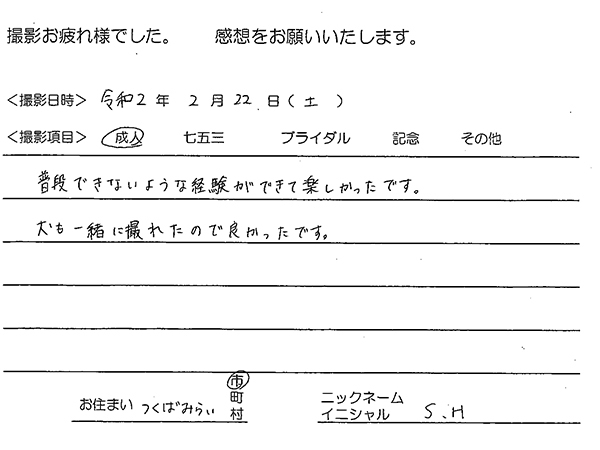 撮影お疲れ様でした。　感想をお願いいたします。
<撮影日時> 令和2 年 2 月 22 日 ( 土 )
<撮影項目> 成人 七五三 ブライダル 記念 その他
普段できないような経験ができて楽しかったです。
犬も一緒に撮れたので良かったです。
お住まい つくばみらい 市 町 村
ニックネーム
イニシャル S.H